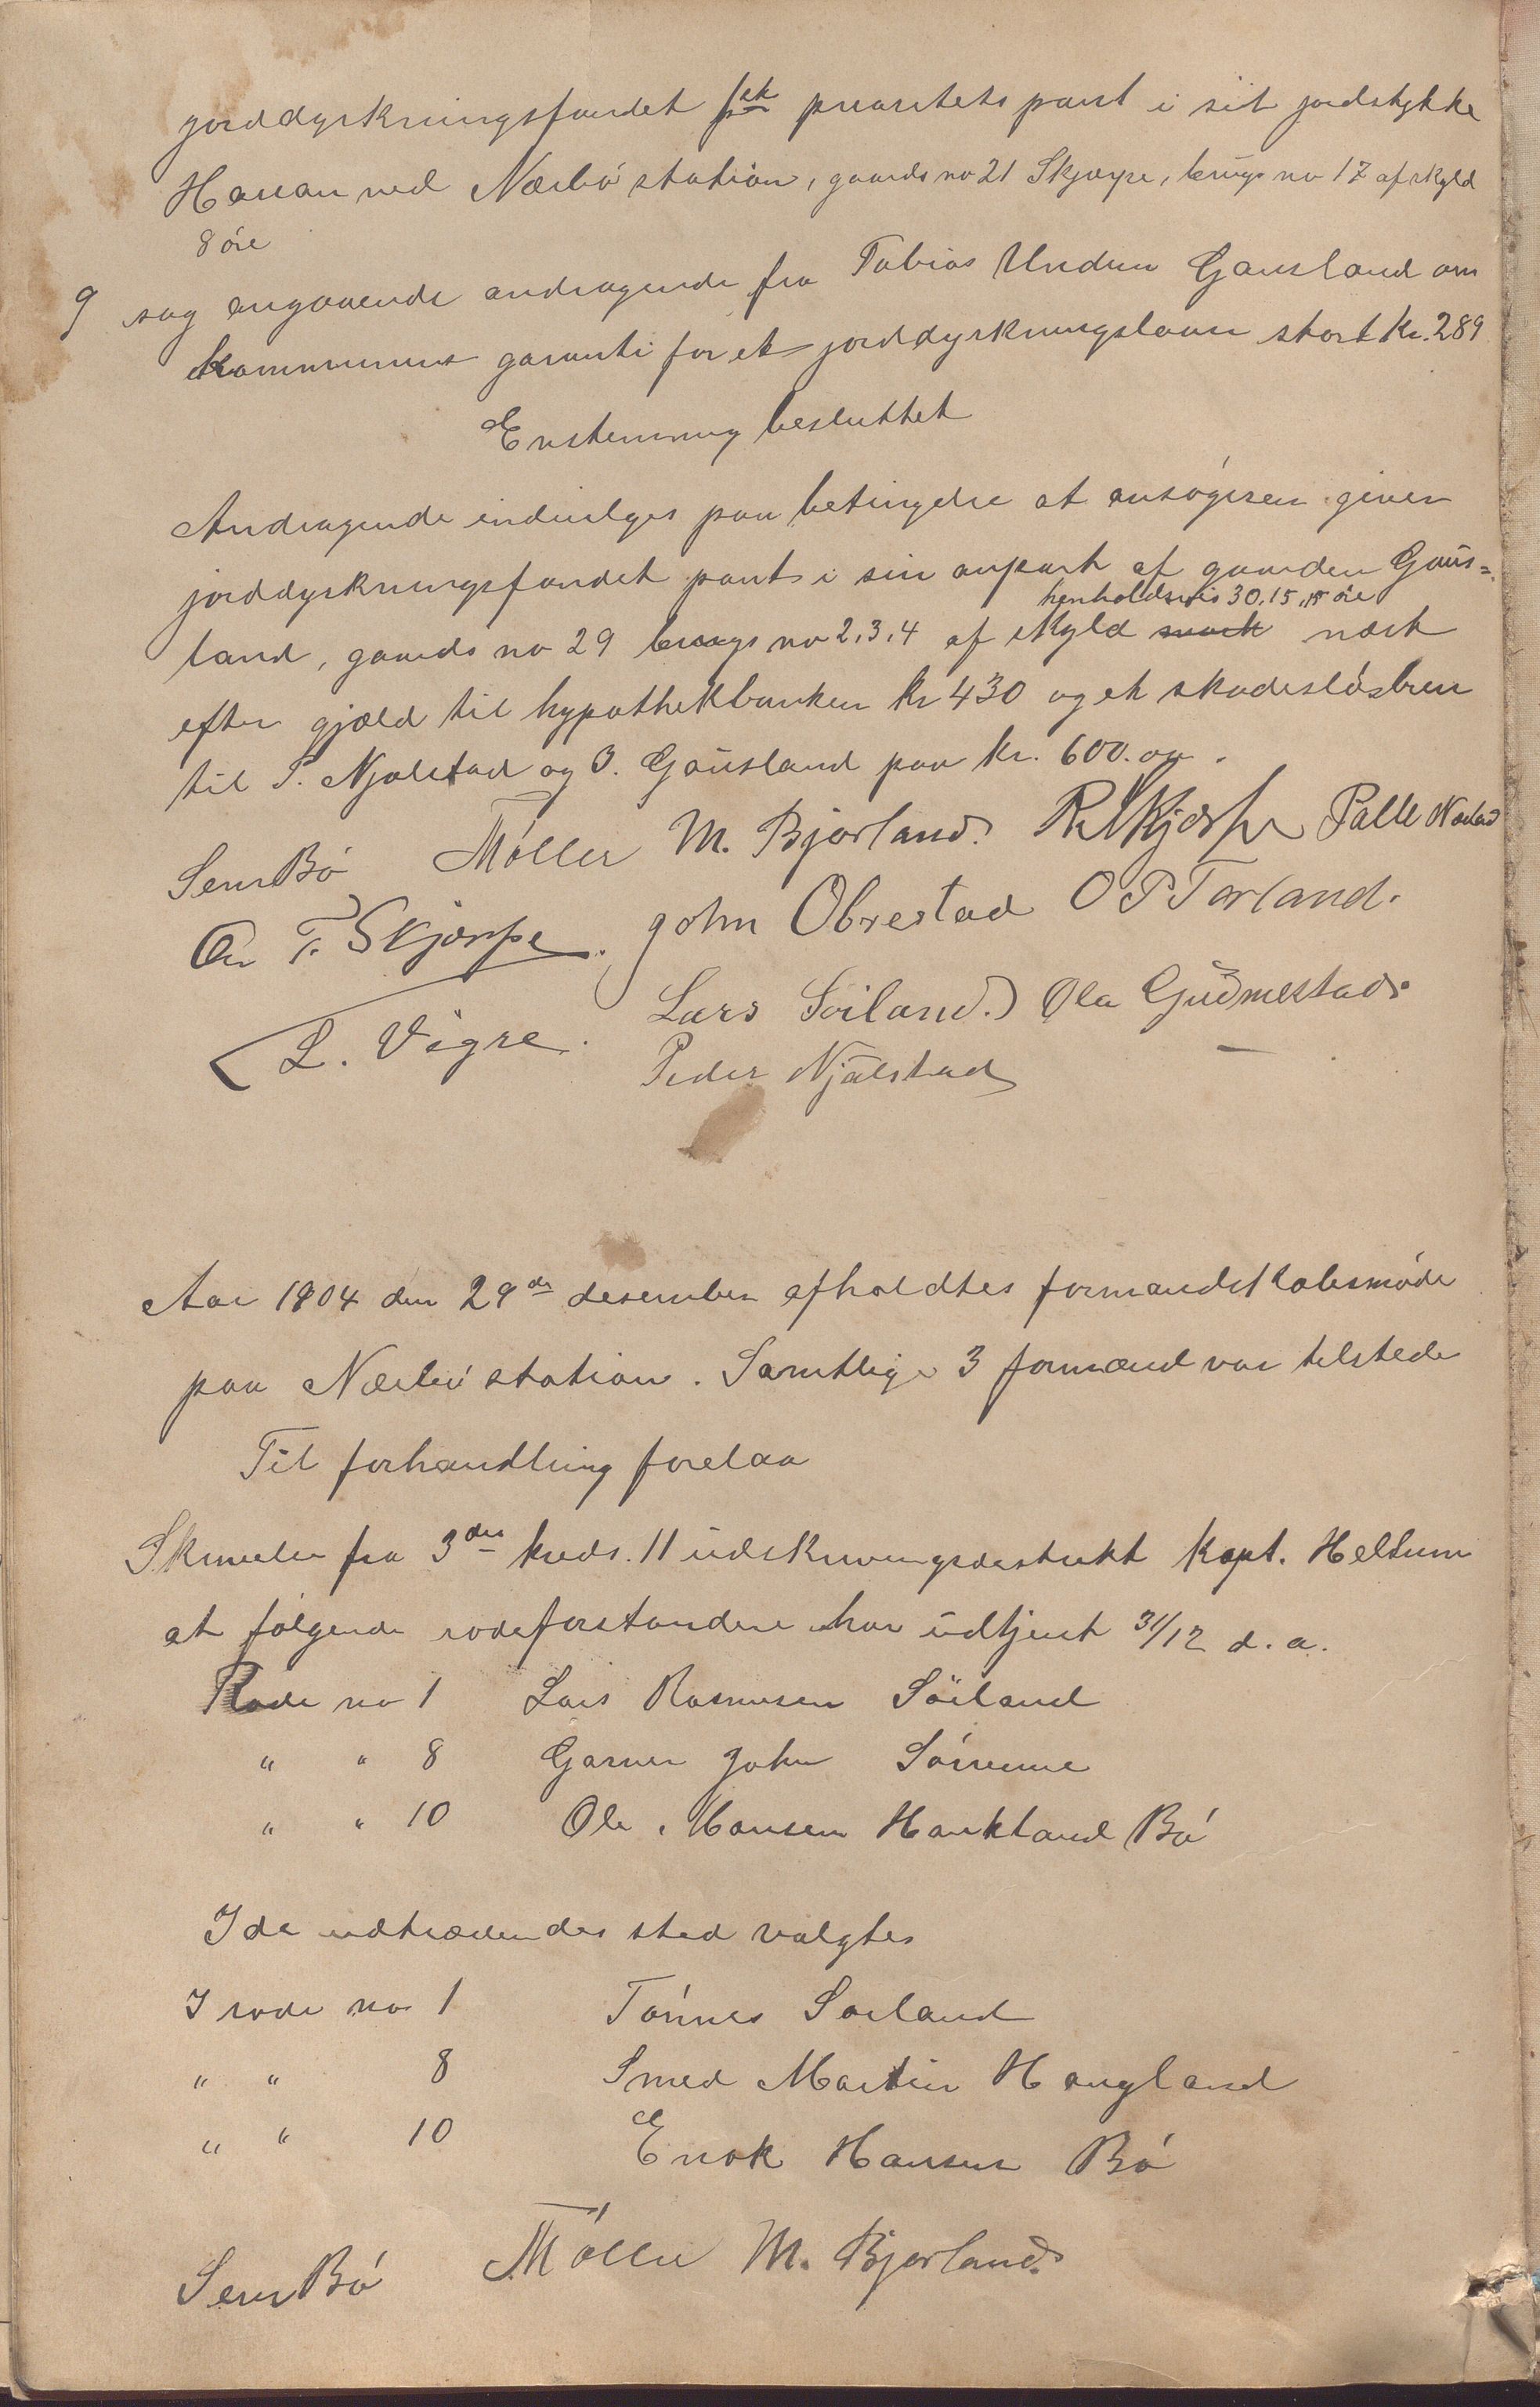 jorddyrkningsfondet 1ste prioritets pant i sit jordstykke
Hanan ved Nærbö station, gaards no 21 Skjærpe, brugs no 17 af skyld
8 öre
9 sag angaaende andragende fra Tobias Undem Gausland om
kommunens garanti for et jorddyrkningslaan stort Kr. 289
Enstemmig besluttet
Andragende indvilges paa betingelse at ansögeren giver
jorddyrkningsfondet pant i sin anpart af gaarden Gaus=
henholdsvis 30, 15, 15 öre
land, gaards no 29 brugs no 2, 3, 4 af skyld mark næst
efter gjæld til hypothekbanken Kr 430 og et skadeslösbrev
til P. Njølstad og O. Gausland paa Kr. 600.00.
Sem Bö T Möller M. Bjorland. R Skjærpe Palle Norlad
On T. Skjærpe. John Obrestad O P Torland.
L. Vigre. Lars Söiland. Ola Gudmestad.
Peder Njålstad
Aar 1904 den 29de desember afholdtes formandskabsmöde
paa Nærbö station. Samtlige 3 formænd var tilstede
Til forhandling forelaa
Skrivelse fra 3die kreds. 11 udskrivningsdistrikt Kapt. Heltum
at følgende rodeforstandere har udtjent 31/12 d. a.
Rode no 1 Lars Rasmusen Söiland
" " 8 Garver John Sörenne
" " 10 Ole Hansen Haukland Bö
I de udtrædendes sted valgtes
I rode no 1 Tönnes Soiland
" " 8 Smed Martin Haugland
" " 10 Enok Hansen Bö
Sem Bö T Möller M. Bjorland.